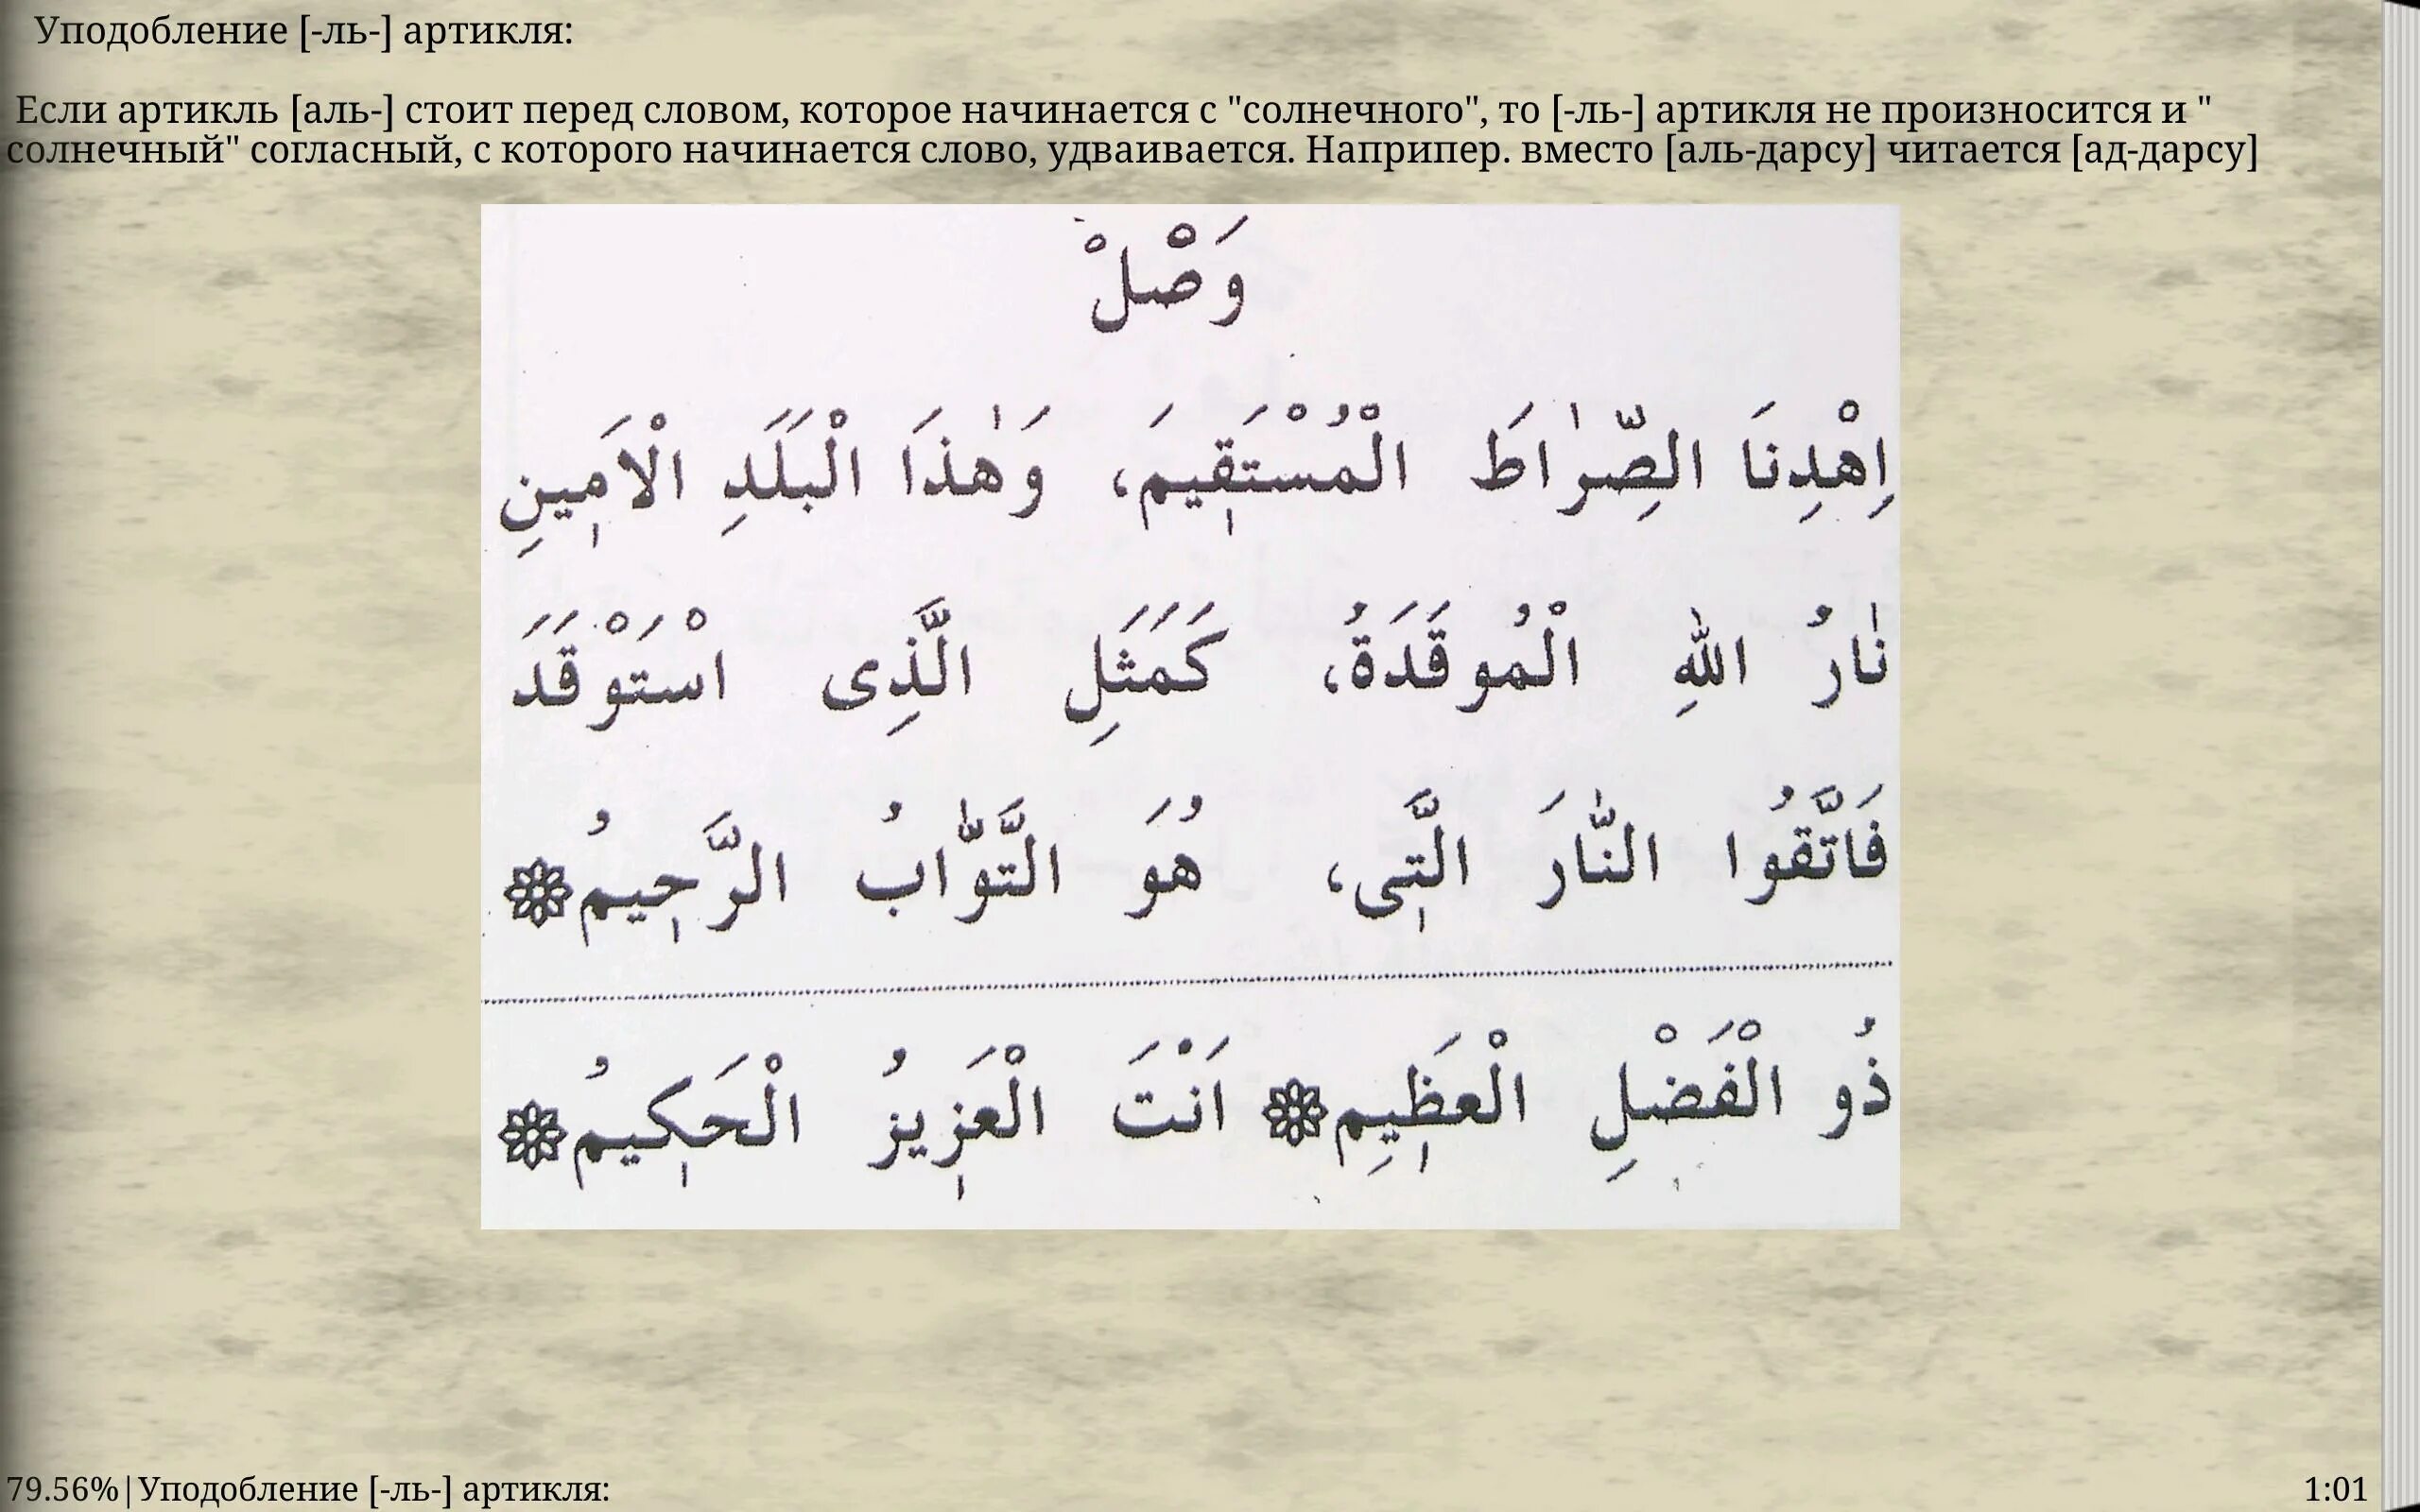 Уподобление [-ль-] артикля:
Если артикль [аль-] стоит перед словом, которое начинается с "солнечного", то [-ль-] артикля не произносится и "
солнечный" согласный, с которого начинается слово, удваивается. Наприпер. вместо [аль-дарсу] читается [ад-дарсу]
وَصْلْ
اِهْدِنَا الصِّرٰاطَ الْمُسْتَقٖيمَ، وَهٰذَا الْبَلَدِ الْاَمٖينِ
نٰارُ اللهِ الْمُوقَدَةُ، كَمَثَلِ الَّذِى اسْتَوْقَدَ
فَاتَّقُوا النّٰارَ الَّتٖى، هُوَ التَّوّٰابُ الرَّحٖيمُ۞
ذُو الْفَضْلِ الْعَظٖيمِ۞ اَنْتَ الْعَزٖيزُ الْحَكٖيمُ۞
79.56%|Уподобление [-ль-] артикля:
1:01